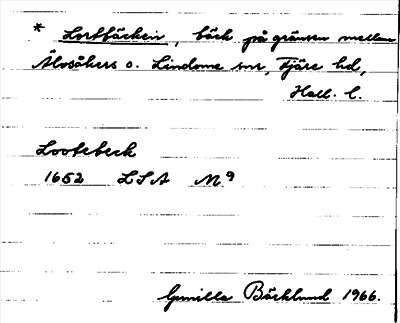 * Lortbäcken, bäck på gränsen mellan
Älvsåkers o. Lindome snr, Fjäre hd,
Hall. l.
Lootebeck
1652 LSA M9
Gunilla Bäcklund 1966.